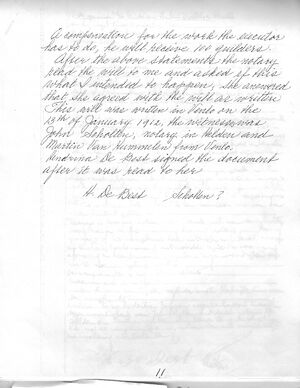 A compensation for the work the executor
has to do, he will receive 100 guilders.
After the above statements the notary
read the will to me and asked if this
what I intended to happen, she answered
that she agreed with the will as written
This will was written in Venlo on the
13th of January 1912, the witnesses was
John Scholten, notary in Helden and
Martin Van Hummelen from Venlo.
Andrina De Best signed the document
after it was read to her
A. De Best Scholten?
11